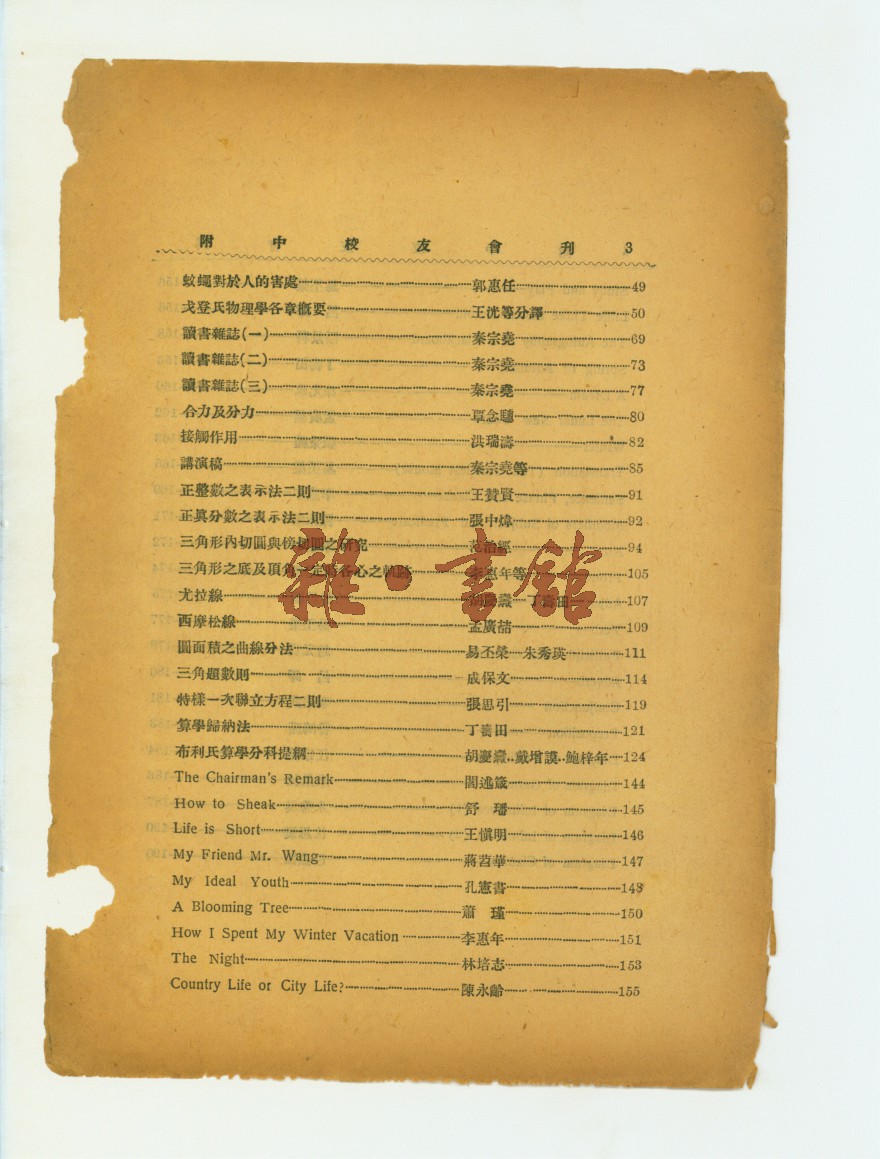 附中校友會刊 3
蚊蠅對於人的害處 郭惠任 49
戈登氏物理學各章概要 王洸等分譯 50
讀書雜誌(一) 秦宗堯 69
讀書雜誌(二) 秦宗堯 73
讀書雜誌(三) 秦宗堯 77
合力及分力 覃念 80
接觸作用 洪瑞濤 82
講演稿 秦宗堯等 85
正整數之表示法二則 王贊賢 91
正眞分數之表示法二則 張中煒 92
三角形內切圓與傍切圓之研究 范治經 94
三角形之底及頂角一定時各心之軌跡 李惠年等 105
尤拉線 丁壽田 107
西摩松線 孟廣喆 109
圓面積之曲線分法 易丕榮 朱秀瑛 111
三角題數則 成保文 114
特樣一次聯立方程二則 張思引 119
算學歸納法 丁壽田 121
布利氏算學分科提綱 戴增謨 鮑梓年 124
The Chairman's Remark 閻述箴 144
How to Sheak 舒璠 145
Life is Short 王愼明 146
My Friend Mr. Wang 華 147
My Ideal Youth 孔憲書 148
A Blooming Tree 蕭瑾 150
How I Spent My Winter Vacation 李惠年 151
The Night 林培志 153
Country Life or City Life? 陳永齡 155
雜·書館